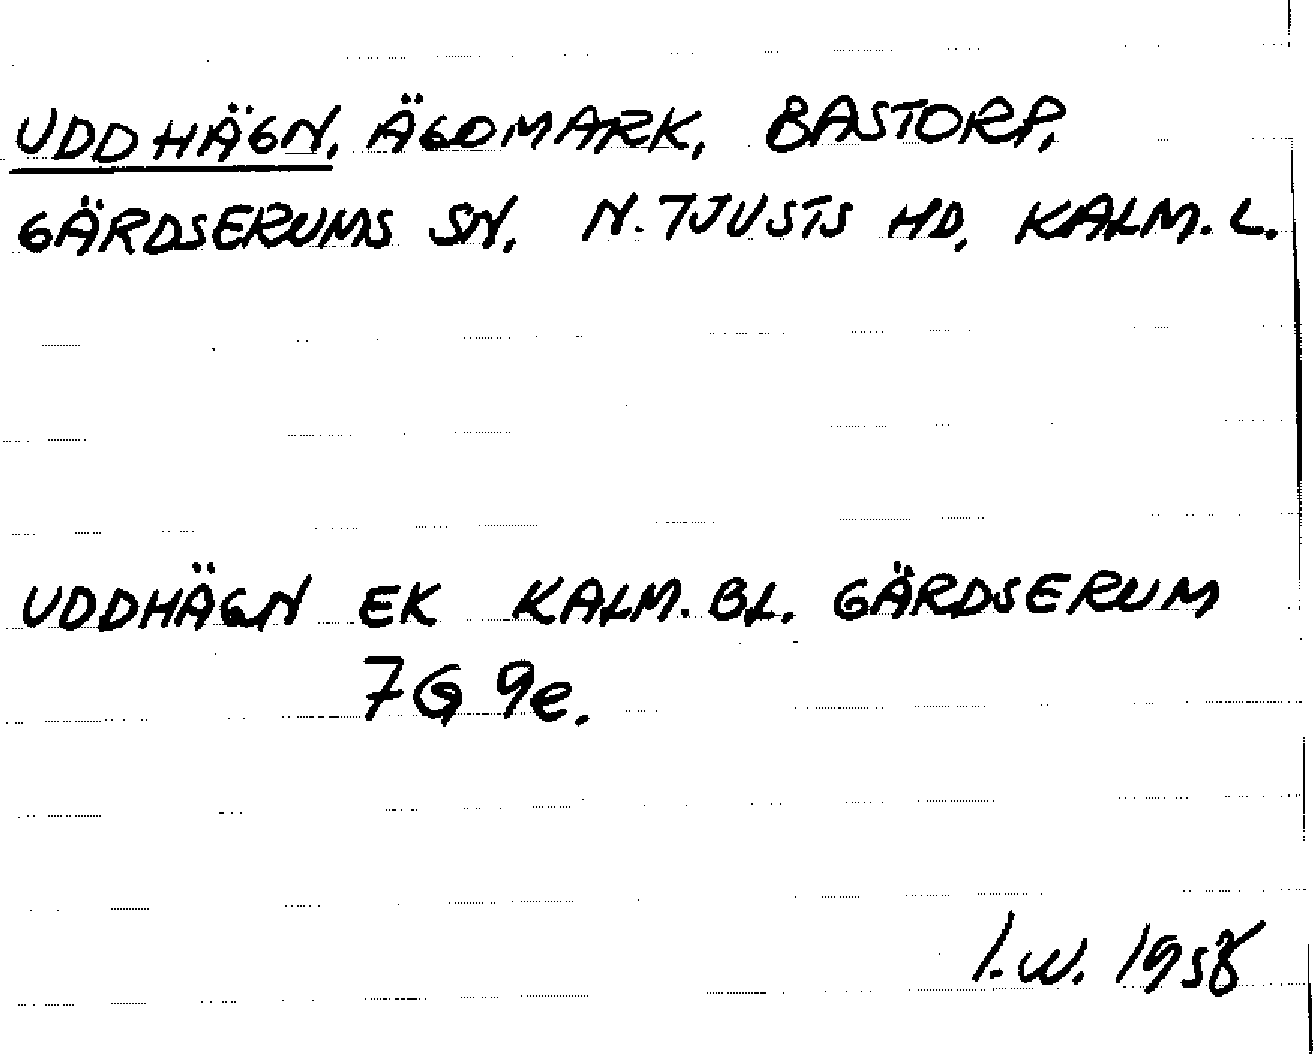 UDDHÄGN, ÄGOMARK, BASTORP,
GÄRDSERUMS SN, N. TJUSTS HD, KALM. L.
UDDHÄGN EK KALM. BL. GÄRDSERUM
7G 9e.
I.W. 1958